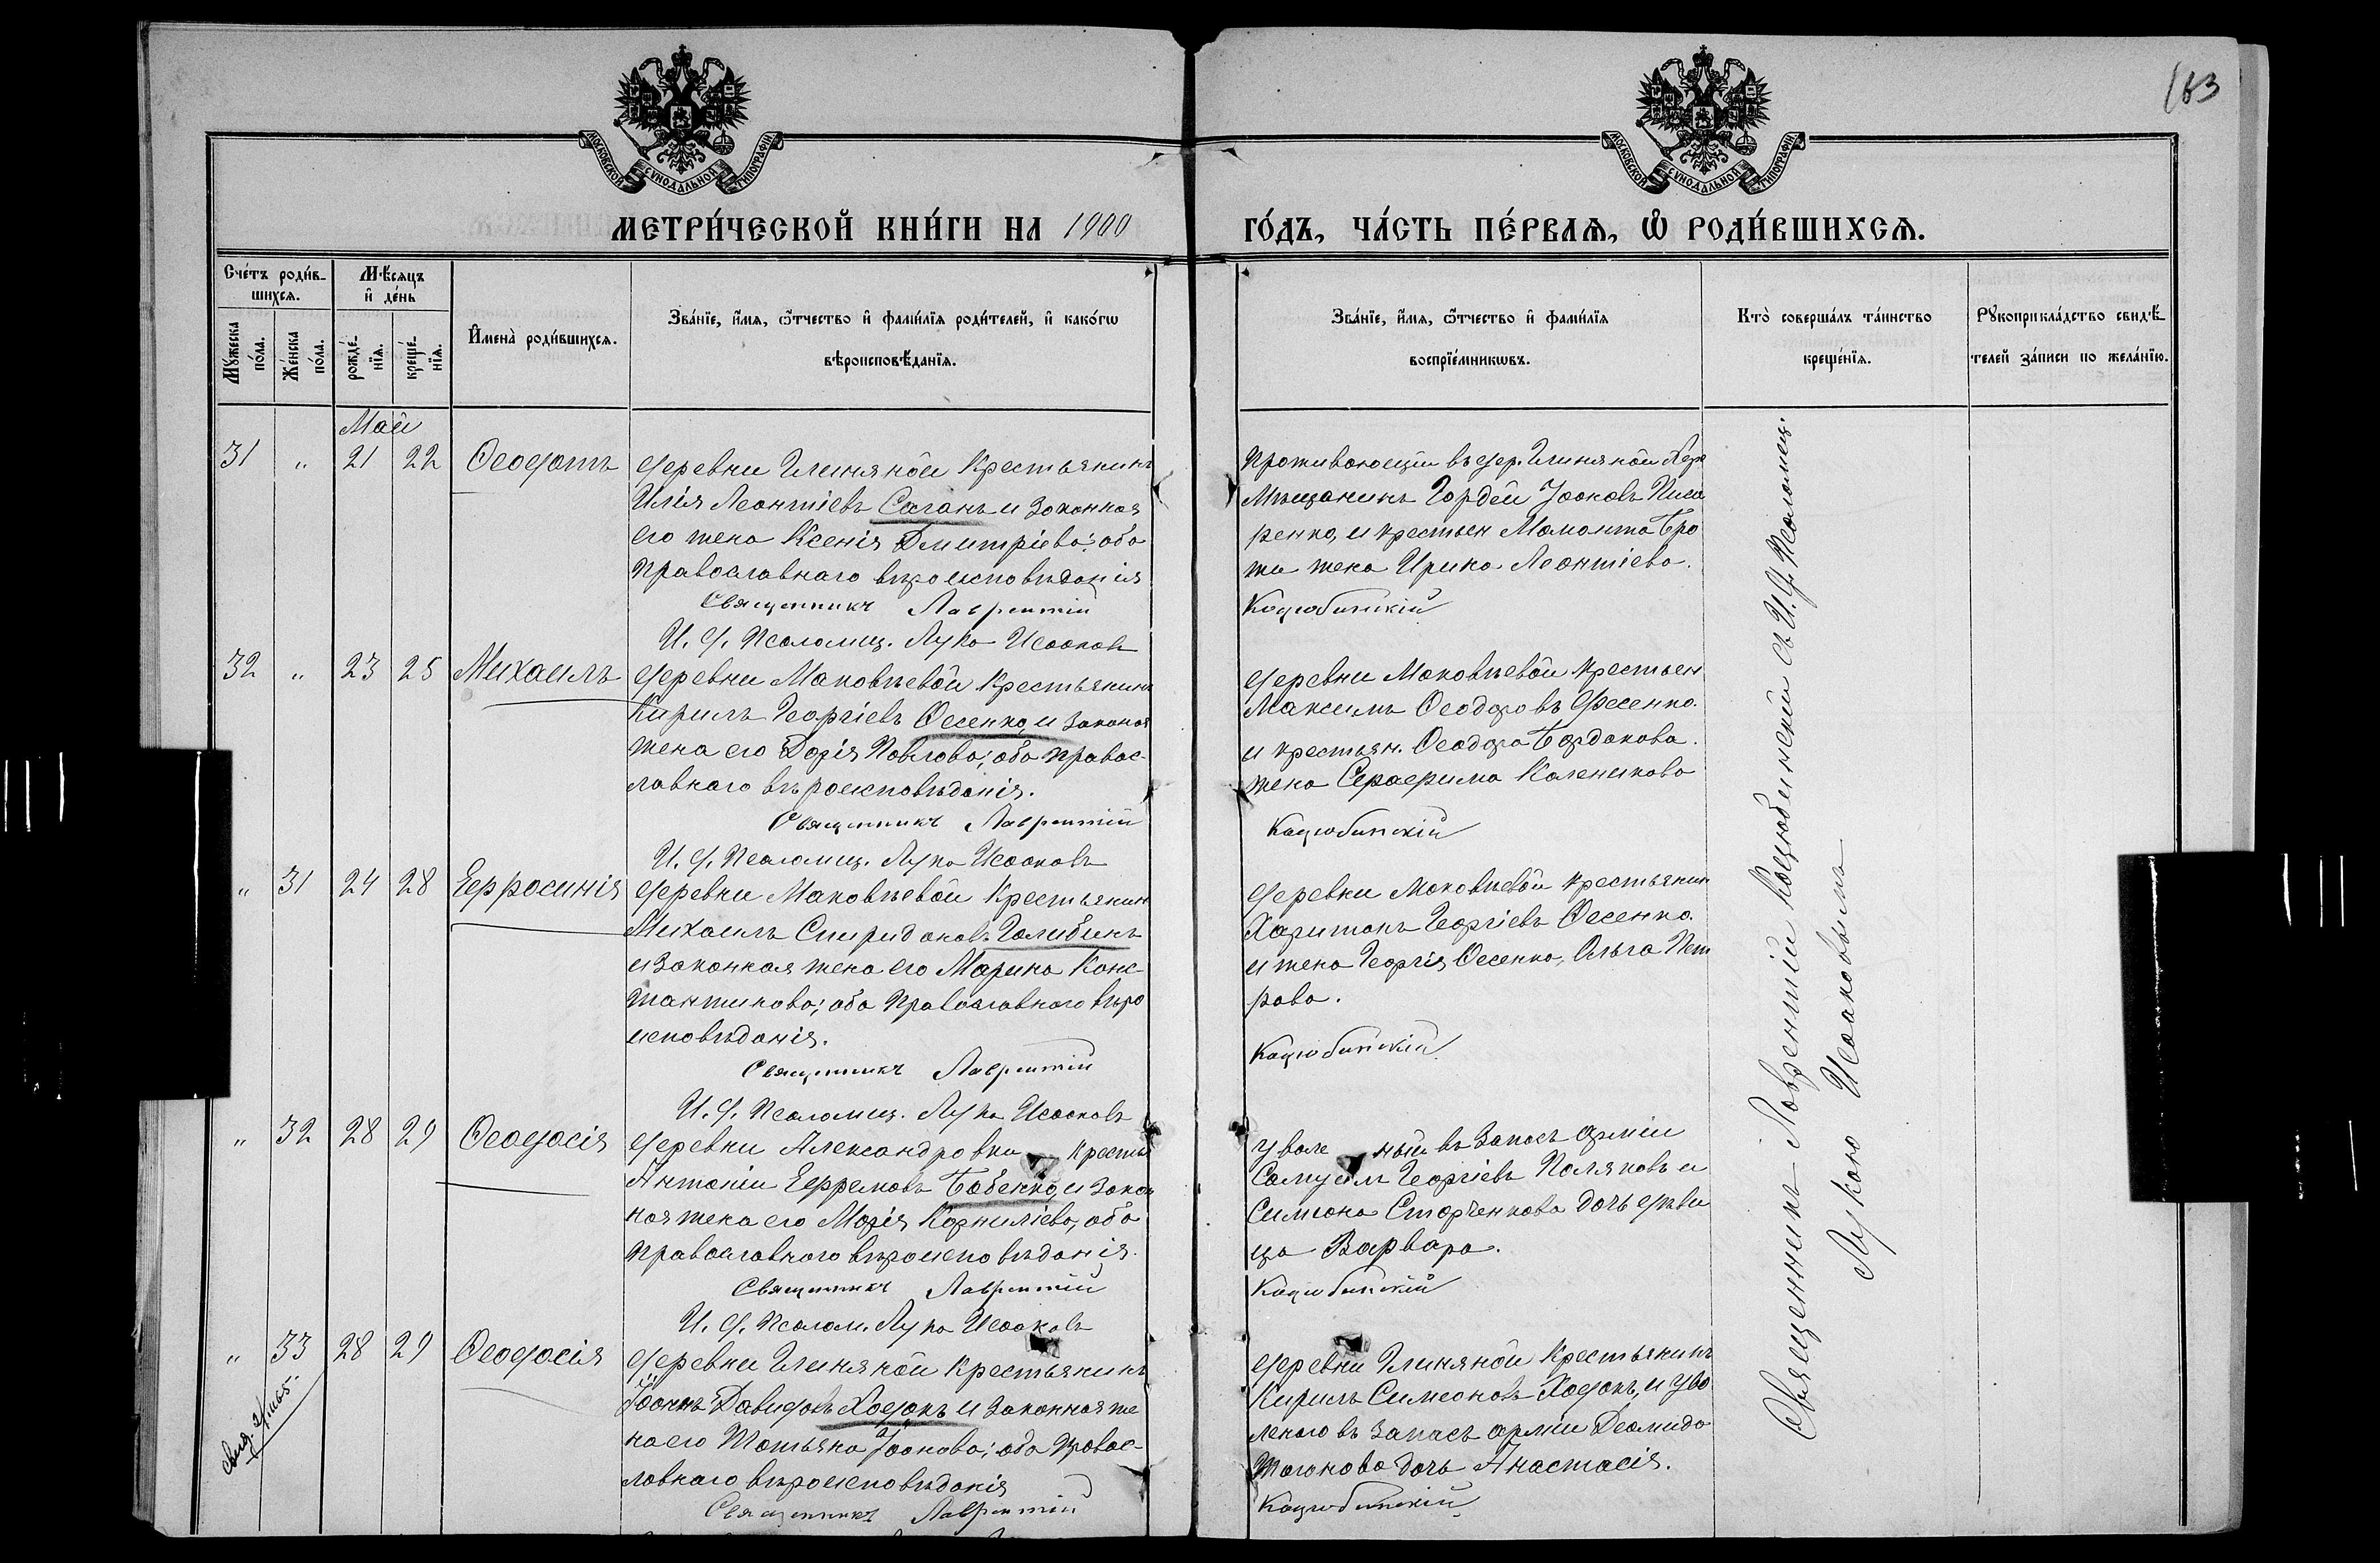 163
МОСКОВСКОЙ СѴНОДАЛЬНОЙ ТИПОГРАФІИ
МОСКОВСКОЙ СѴНОДАЛЬНОЙ ТИПОГРАФІИ
МЕТРИ́ЧЕСКОЙ КНИ́ГИ НА 1900
ГО́ДЪ, ЧА́СТЬ ПЕ́РВАѦ, Ѽ РОДИ́ВШИХСѦ.
Сче́тъ роди́в-
шихсѧ.
Мѣ́сѧцъ
и҆ де́нь
Мꙋ́жеска
по́ла.
Же́нска
по́ла.
рожде́-
нїѧ.
креще́-
нїѧ.
И҆мена̀ роди́вшихсѧ.
Зва́нїе, и҆́мѧ, ѻ҆́тчество и҆ фами́лїѧ роди́телей, и҆ како́гѡ
вѣроисповѣ́данїѧ.
Зва́нїе, и҆́мѧ, ѻ҆́тчество и҆ фами́лїѧ
воспрїе́мникѡвъ.
Кто̀ соверша́лъ та́инство
креще́нїѧ.
Рꙋкоприкла́дство свидѣ́-
телей за́писи по жела́нїю.
Май
31 " 21 22 Ѳеодотъ
деревни Глиняной крестьянинъ
Илія Леонтіевъ Саганъ и законная
его жена Ксенія Дмитріева; оба
православнаго вѣроисповѣданія
Священникъ Лаврентій
И. д. Псаломщ. Лука Исааковъ
Проживающій въ дер. Глиняной
Мѣщанинъ Гордей
ренко, и крестьян Мамонта Бро
жена Ирина Леонтіева.
Коцюбинскій
32 " 23 25 Михаилъ
деревни Маковѣевой крестьянинъ
Кирилъ Георгіевъ Ѳесенко, и законая
жена его Дарія Павлова; оба правос-
лавнаго вѣроисповѣданія.
Священникъ Лаврентій
И. д. Псаломщ. Лука Исааковъ
деревни Маковѣевой крестьян
Максимъ Ѳеодоровъ Фесенко.
и крестьян. Ѳеодора Бардакова.
жена Серафима Каленикова
Коцюбинскій
" 31 24 28 Евфросинія
деревни Маковѣевой крестьянин
Михаилъ Спиридоновъ Галибинъ
и законная жена его Марина Конс-
тантинова; оба православнаго вѣро
исповѣданія.
Священникъ Лаврентій
И. д. Псаломщ. Лука Исааковъ
деревни Маковѣевой крестьянин
Харитонъ Георгіевъ Ѳесенко.
и жена Георгія Ѳесенко, Ольга Пет
рова.
Коцюбинскій
" 32 28 29 Ѳеодосія
деревни Александровки кресть
Антоній Ефремовъ Бабенко, и закон
ная жена его Марія Корниліева, оба
православного вѣроисповѣданія.
Священникъ Лаврентій
И. д. Псалом. Лука Исааковъ
уволе ный въ запасъ арміи
Самуилъ Георгіевъ Поляковъ и
Симиона Сторченкова дочь дѣви
ца Варвара.
Коцюбинскій
" 33 28 29 Ѳеодосія
деревни Глиняной крестьянинъ
Іоаннъ Давидовъ Ходакъ и законная же
на его Татьяна Іоанова; оба правос-
лавнаго вѣроисповѣданія
Священникъ Лаврентій
деревни Глиняной крестьянинъ
Кирилъ Симеоновъ Ходакъ, и уво
ленаго въ запасъ арміи Деомида
дочь Анастасія.
Коцюбинскій
Священникъ Лаврентій Коцюбинскій съ И. д. Псаломщ.
Лукою Исааковымъ